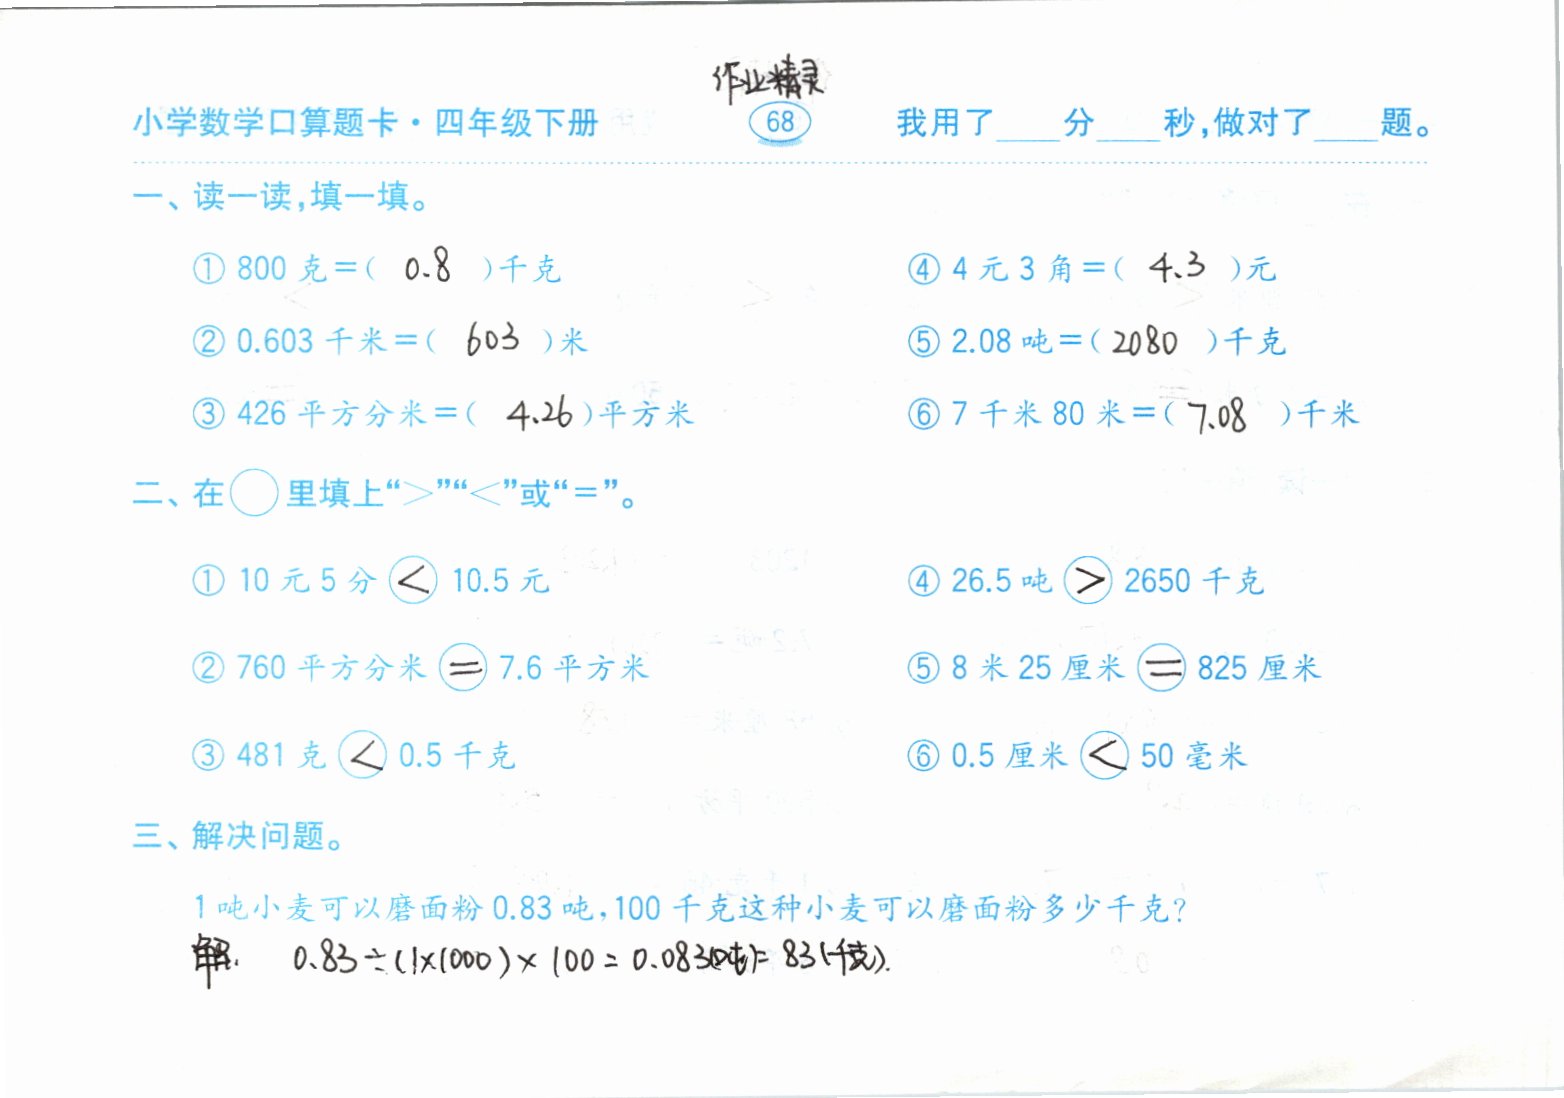 作业精灵
小学数学口算题卡·四年级下册 68 我用了____分____秒,做对了____题。
一、读一读,填一填。
① 800 克=( 0.8 )千克 ④ 4 元 3 角=( 4.3 )元
② 0.603 千米=( 603 )米 ⑤ 2.08 吨=( 2080 )千克
③ 426 平方分米=( 4.26 )平方米 ⑥ 7 千米 80 米=( 7.08 )千米
二、在○里填上“>”“<”或“=”。
① 10 元 5 分 < 10.5 元 ④ 26.5 吨 > 2650 千克
② 760 平方分米 = 7.6 平方米 ⑤ 8 米 25 厘米 = 825 厘米
③ 481 克 < 0.5 千克 ⑥ 0.5 厘米 < 50 毫米
三、解决问题。
1 吨小麦可以磨面粉 0.83 吨,100 千克这种小麦可以磨面粉多少千克?
解. 0.83÷(1×1000)×100=0.083(吨)=83(千克).